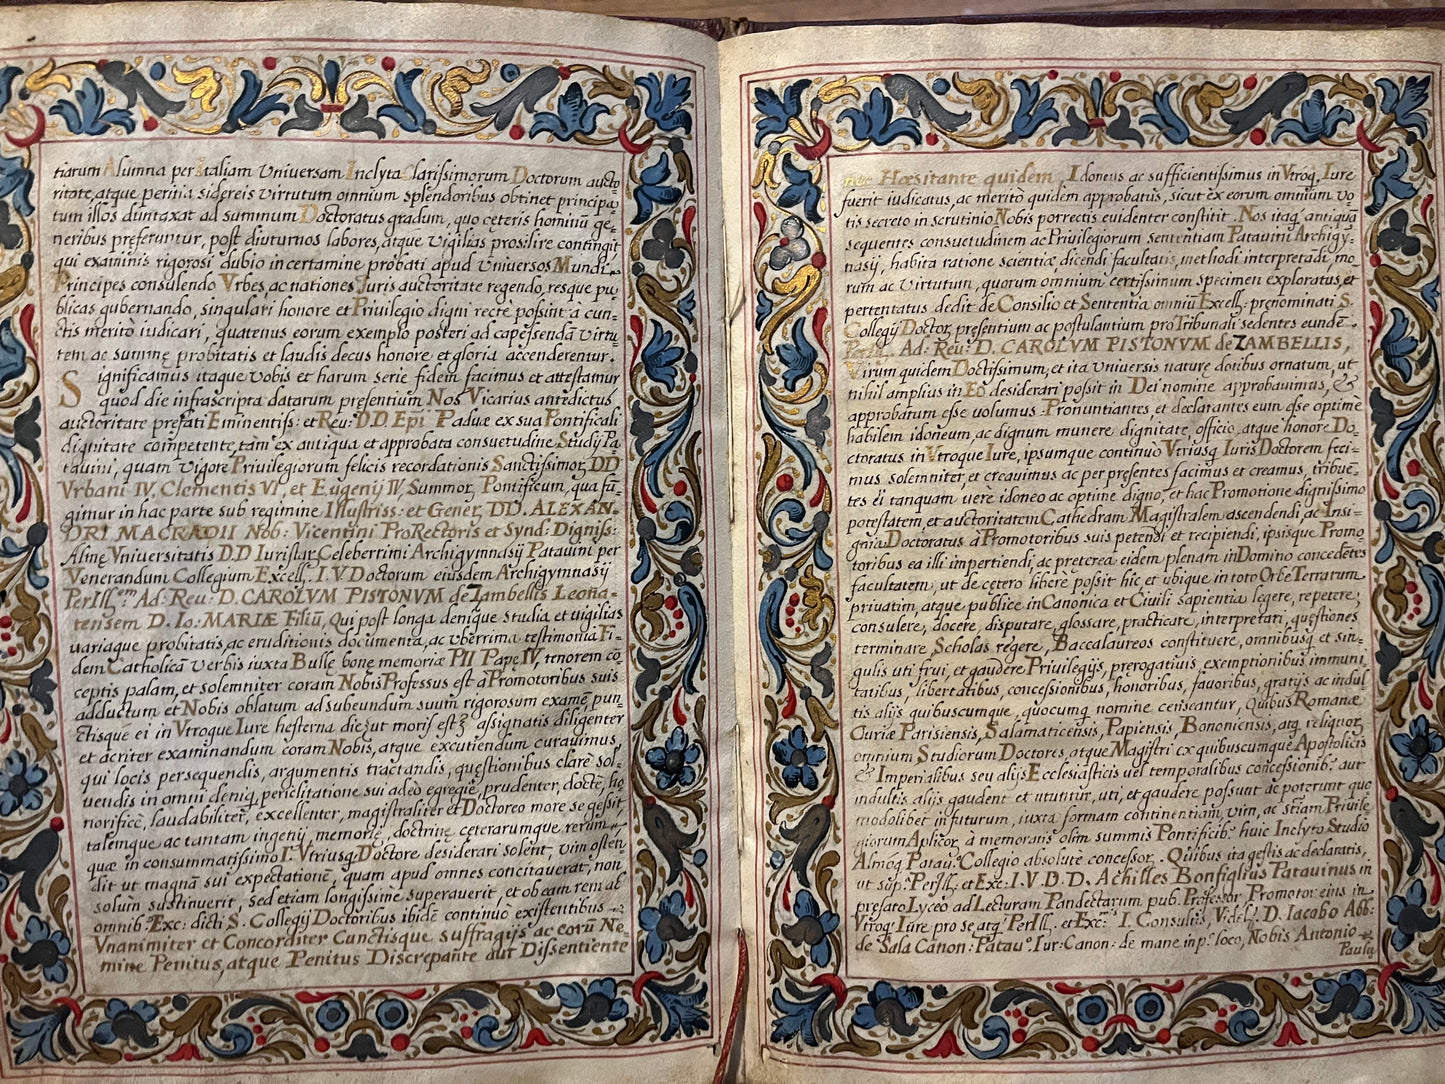 tiarum Alumna per Italiam Universam Inclyta Clarissimorum Doctorum aucto-
ritate, atque perinia sidereis virtutum omnium splendoribus obtinet principa-
tum illos duntaxat ad summum Doctoratus gradum, quo cęteris hominũ gę-
neribus pręferuntur, post diuturnos labores, atque vigilias prosilire contingit
qui examinis rigorosi dubio in certamine probati apud Universos Mundi
Principes consulendo Vrbes, ac nationes Juris auctoritate regendo, resque pu-
blicas gubernando, singulari honore et Privilegio digni rectè possint à cun-
ctis meritò iudicari, quatenus eorum exemplo posteri ad capessendã virtu-
tem ac summę probitatis et laudis decus honore et gloria accenderentur.
Significamus itaque vobis et harum serie fidem facimus et attestamur
quod die infrascripta datarum presentium Nos Vicarius antedictus
auctoritate prefati Eminentiss: et Reu: D.D. Epi Paduę ex sua Pontificali
dignitate competente, tam ex antiqua et approbata consuetudine Study Pa-
tauini, quam vigore Priuilegiorum felicis recordationis Sanctissimor, DD
Vrbani IV, Clementis VI, et Eugenij IV, Summor, Pontificum, qua fũ-
gimur in hac parte sub regimine Illustriss: et Gener, DD. ALEXAN-
DRI MACRADII Nob: Vicentini ProRectoris et Synd: Digniss:
Almę Vniuersitatis D.D Iuristar, Celeberrimi Archigymnasij Patauini per
Venerandum Collegium Excell, I.V Doctorum eiusdem Archigymnasij
PerIll,em Ad: Reu: D. CAROLVM PISTONVM de Zambellis Leona-
tensem D. Io: MARIÆ Filiũ, Qui post longa denique studia et vigilias
uariaque probitatis, ac eruditionis documenta, ac vberrima testimonia Fi-
dem Catholicã verbis iuxta Bullę bonę memoriæ PII Papę IV, tenorem co-
ceptis palam, et solemniter coram Nobis Professus est à Promotoribus suis
adductum et Nobis oblatum ad subeundum suum rigorosum examẽ pun-
ctisque ei in Vtroque Iure hesterna die, ut moris est, assignatis diligenter
et acriter examinandum coram Nobis, atque excutiendum curauimus,
qui locis persequendis, argumentis tractandis, quęstionibus clarè sol-
uendis in omni deniq, periclitatione sui adeò egregiè, prudenter, doctè, ho
norificè, laudabiliter, excellenter, magistraliter et Doctoreo more se gessit
talemque ac tantam ingenij memorię, doctrinę cęterarumque rerum,
quæ in consummatissimo I. Vtriusq, Doctore desiderari solent, vim osten
dit ut magnã sui expectationẽ, quam apud omnes concitauerat, non
solum sustinuerit, sed etiam longissimè superauerit, et ob eam rem ab
omnib. Exc: dicti S. Collegij Doctoribus ibidẽ continuò existentibus
Vnanimiter et Concorditer Cunctisque suffragijs ac corũ Ne-
mine Penitus, atque Penitus Discrepante aut Dissentiente
Hæsitante quidem, Idoneus ac sufficientissimus in Vtroq, Iure
fuerit iudicatus, ac meritò quidem approbatus, sicut ex eorum omnium vo
tis secreto in scrutinio Nobis porrectis euidenter constitit. Nos itaq, antiquã
sequentes consuetudinem ac Priuilegiorum sententiam Patauini Archigy-
nasij, habita ratione scientię, dicendi facultatis, methodi interpretãdi, mo
rum ac virtutum, quorum omnium certissimum specimen exploratus, et
pertentatus dedit de Consilio et Sententia omniũ Excell, pręnominati S.
Collegij Doctor, presentium ac postulantium pro Tribunali sedentes eundẽ
PerIll, Ad. Reu: D. CAROLVM PISTONVM de ZAMBELLIS,
Virum quidem Doctissimum, et ita Vniuersis naturę dotibus ornatum, ut
nihil amplius in Eo desiderari possit in Dei nomine approbauimus, &
approbatum esse volumus Pronuntiantes et declarantes eum esse optimè
habilem idoneum, ac dignum munere dignitate, officio, atque honore Do-
ctoratus in Vtroque Iure, ipsumque continuò Vtriusq, Iuris Doctorem feci-
mus solemniter, et creauimus ac per presentes facimus et creamus, tribuẽ-
tes ei tanquam uerè idoneo ac optimè digno, et hac Promotione dignissimo
potestatem, et auctoritatem Cathedram Magistralem ascendendi, ac Insi-
gnia Doctoratus à Promotoribus suis petendi et recipiendi, ipsisque Promo-
toribus ea illi impertiendi, ac prętcrea eidem plenam in Domino concedẽtes
facultatem, ut de cętero liberè possit hic et ubique in toto Orbe Terratum
priuatim, atque publicè in Canonica et Ciuili sapientia legere, repetere,
consulere, docere, disputare, glossare, practicare, interpretari, quęstiones
terminare, Scholas regere, Baccalaureos constituere, omnibusq, et sin-
gulis uti frui, et gaudere Priuilegijs, prerogatiuis, exemptionibus immuni
tatibus, libertatibus, concessionibus, honoribus, fauoribus, gratijs ac indul
tis alijs quibuscumque, quocumq, nomine censeantur, Quibus Romanæ
Curiæ Parisiensis, Salamaticensis, Papiensis, Bononiensis, atq, reliquor,
omnium Studiorum Doctores, atque Magistri ex quibuscumque Apostolicis
& Imperialibus seu alijs Ecclesiasticis uel temporalibus concessionib. aut
indultis alijs gaudent et utuntur, uti, et gaudere possunt ac poterunt quo
modolibet in futurum, iuxta formam continentiam, vim, ac seriam Priuile
giorum Aplicor, à memoratis olim summis Pontificib. huic Inclyto Studio
Almoq, Patau. Collegio absolutè concessor. Quibus ita gestis ac declaratis,
ut sup. PerIll, et Exc: I.V.D.D. Achilles Bonfiglius Patauinus in
prefato Lyceo ad Lecturam Pandectarum pub. Professor Promotor eius in
Vtroq, Iure pro se atq, PerIll. et Exc. I. Consultis, Videll, D. Iacobo Abb:
de Sala Canon: Patau. Iur: Canon: de mane in p. loco, Nobis Antonio
Paulu